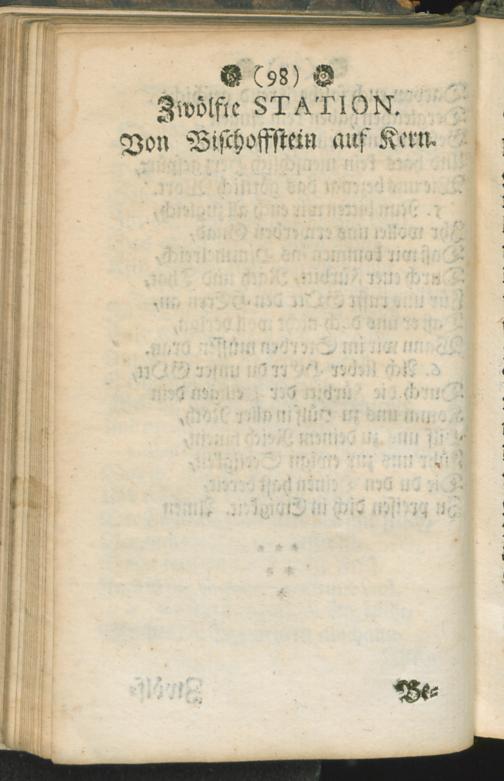 (98)
Zwölfte STATION.
Von Bischoffstein auf Kern.
Be=